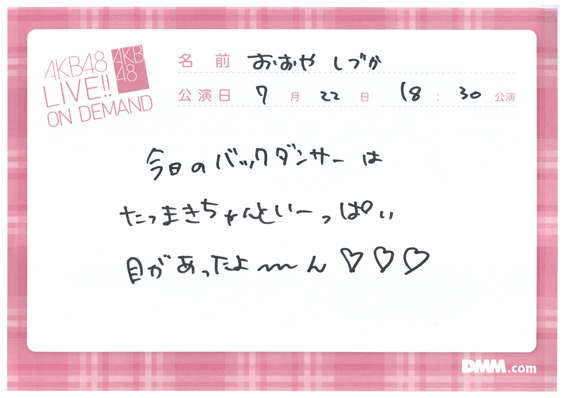 AKB48
LIVE!!
ON DEMAND
AKB
48
名前 おおや しづか
公演日 7月22日 18:30公演
今日のバックダンサーは
たつまきちゃんといーっぱい
目があったよ〜ん♡♡♡
DMM.com